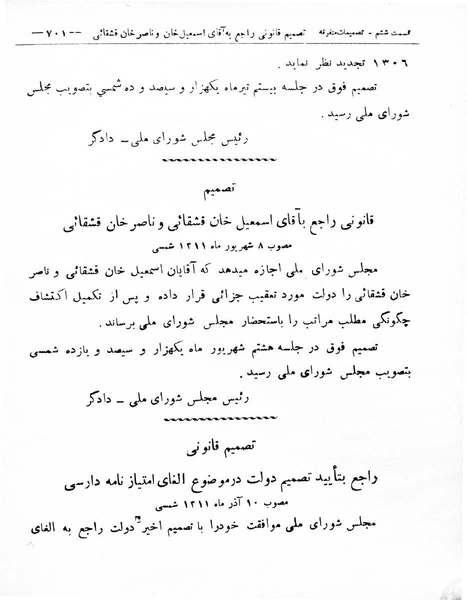 قسمت ششم - تصمیمات متفرقه   تصمیم قانونی راجع به آقای اسمعیل خان و ناصر خان قشقائی -- ۷۰۱ --
۱۳۰۶ تجدید نظر نماید .
تصمیم فوق در جلسه بیستم تیرماه یکهزار و سیصد و ده شمسی بتصویب مجلس
شورای ملی رسید .
رئیس مجلس شورای ملی - دادگر
تصمیم
قانونی راجع بآقای اسمعیل خان قشقائی و ناصر خان قشقائی
مصوب ۸ شهریور ماه ۱۳۱۱ شمسی
مجلس شورای ملی اجازه میدهد که آقایان اسمعیل خان قشقائی و ناصر
خان قشقائی را دولت مورد تعقیب جزائی قرار داده و پس از تکمیل اکتشاف
چگونگی مطلب مراتب را باستحضار مجلس شورای ملی برساند .
تصمیم فوق در جلسه هشتم شهریور ماه یکهزار و سیصد و یازده شمسی
بتصویب مجلس شورای ملی رسید .
رئیس مجلس شورای ملی - دادگر
تصمیم قانونی
راجع بتأیید تصمیم دولت در موضوع الغای امتیاز نامه دارسی
مصوب ۱۰ آذر ماه ۱۳۱۱ شمسی
مجلس شورای ملی موافقت خود را با تصمیم اخیر دولت راجع به الغای